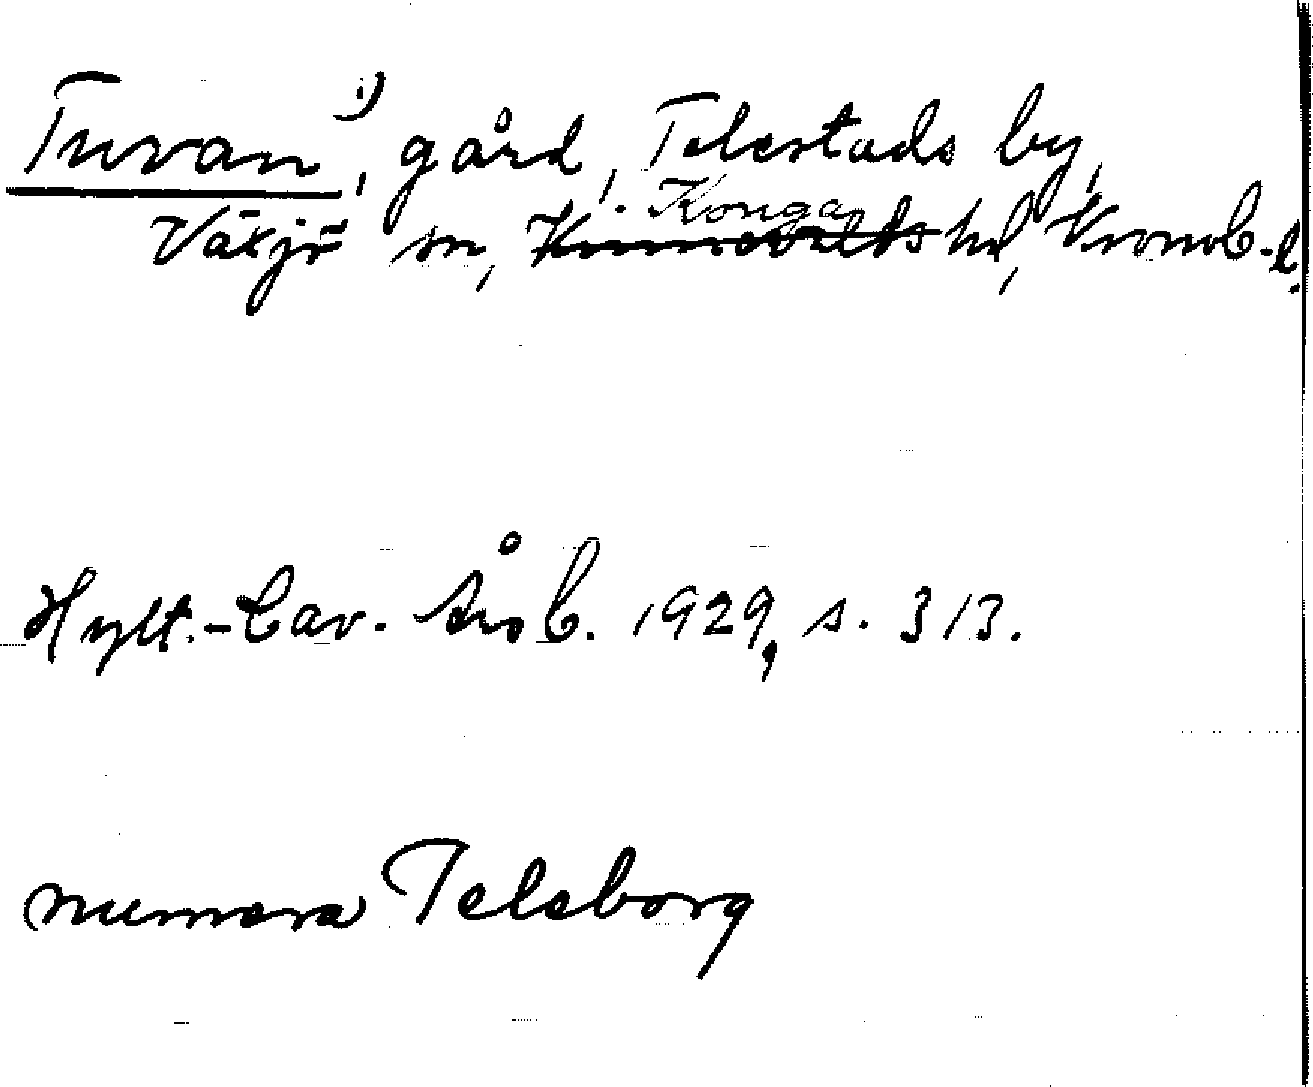 Tuvan ¹), gård, Telestads by,
Växjö sn, Konga Kinnevalds hd, Kronob.-l.
Hylt.-Cav. Årsb. 1929, s. 313.
numera Teleborg